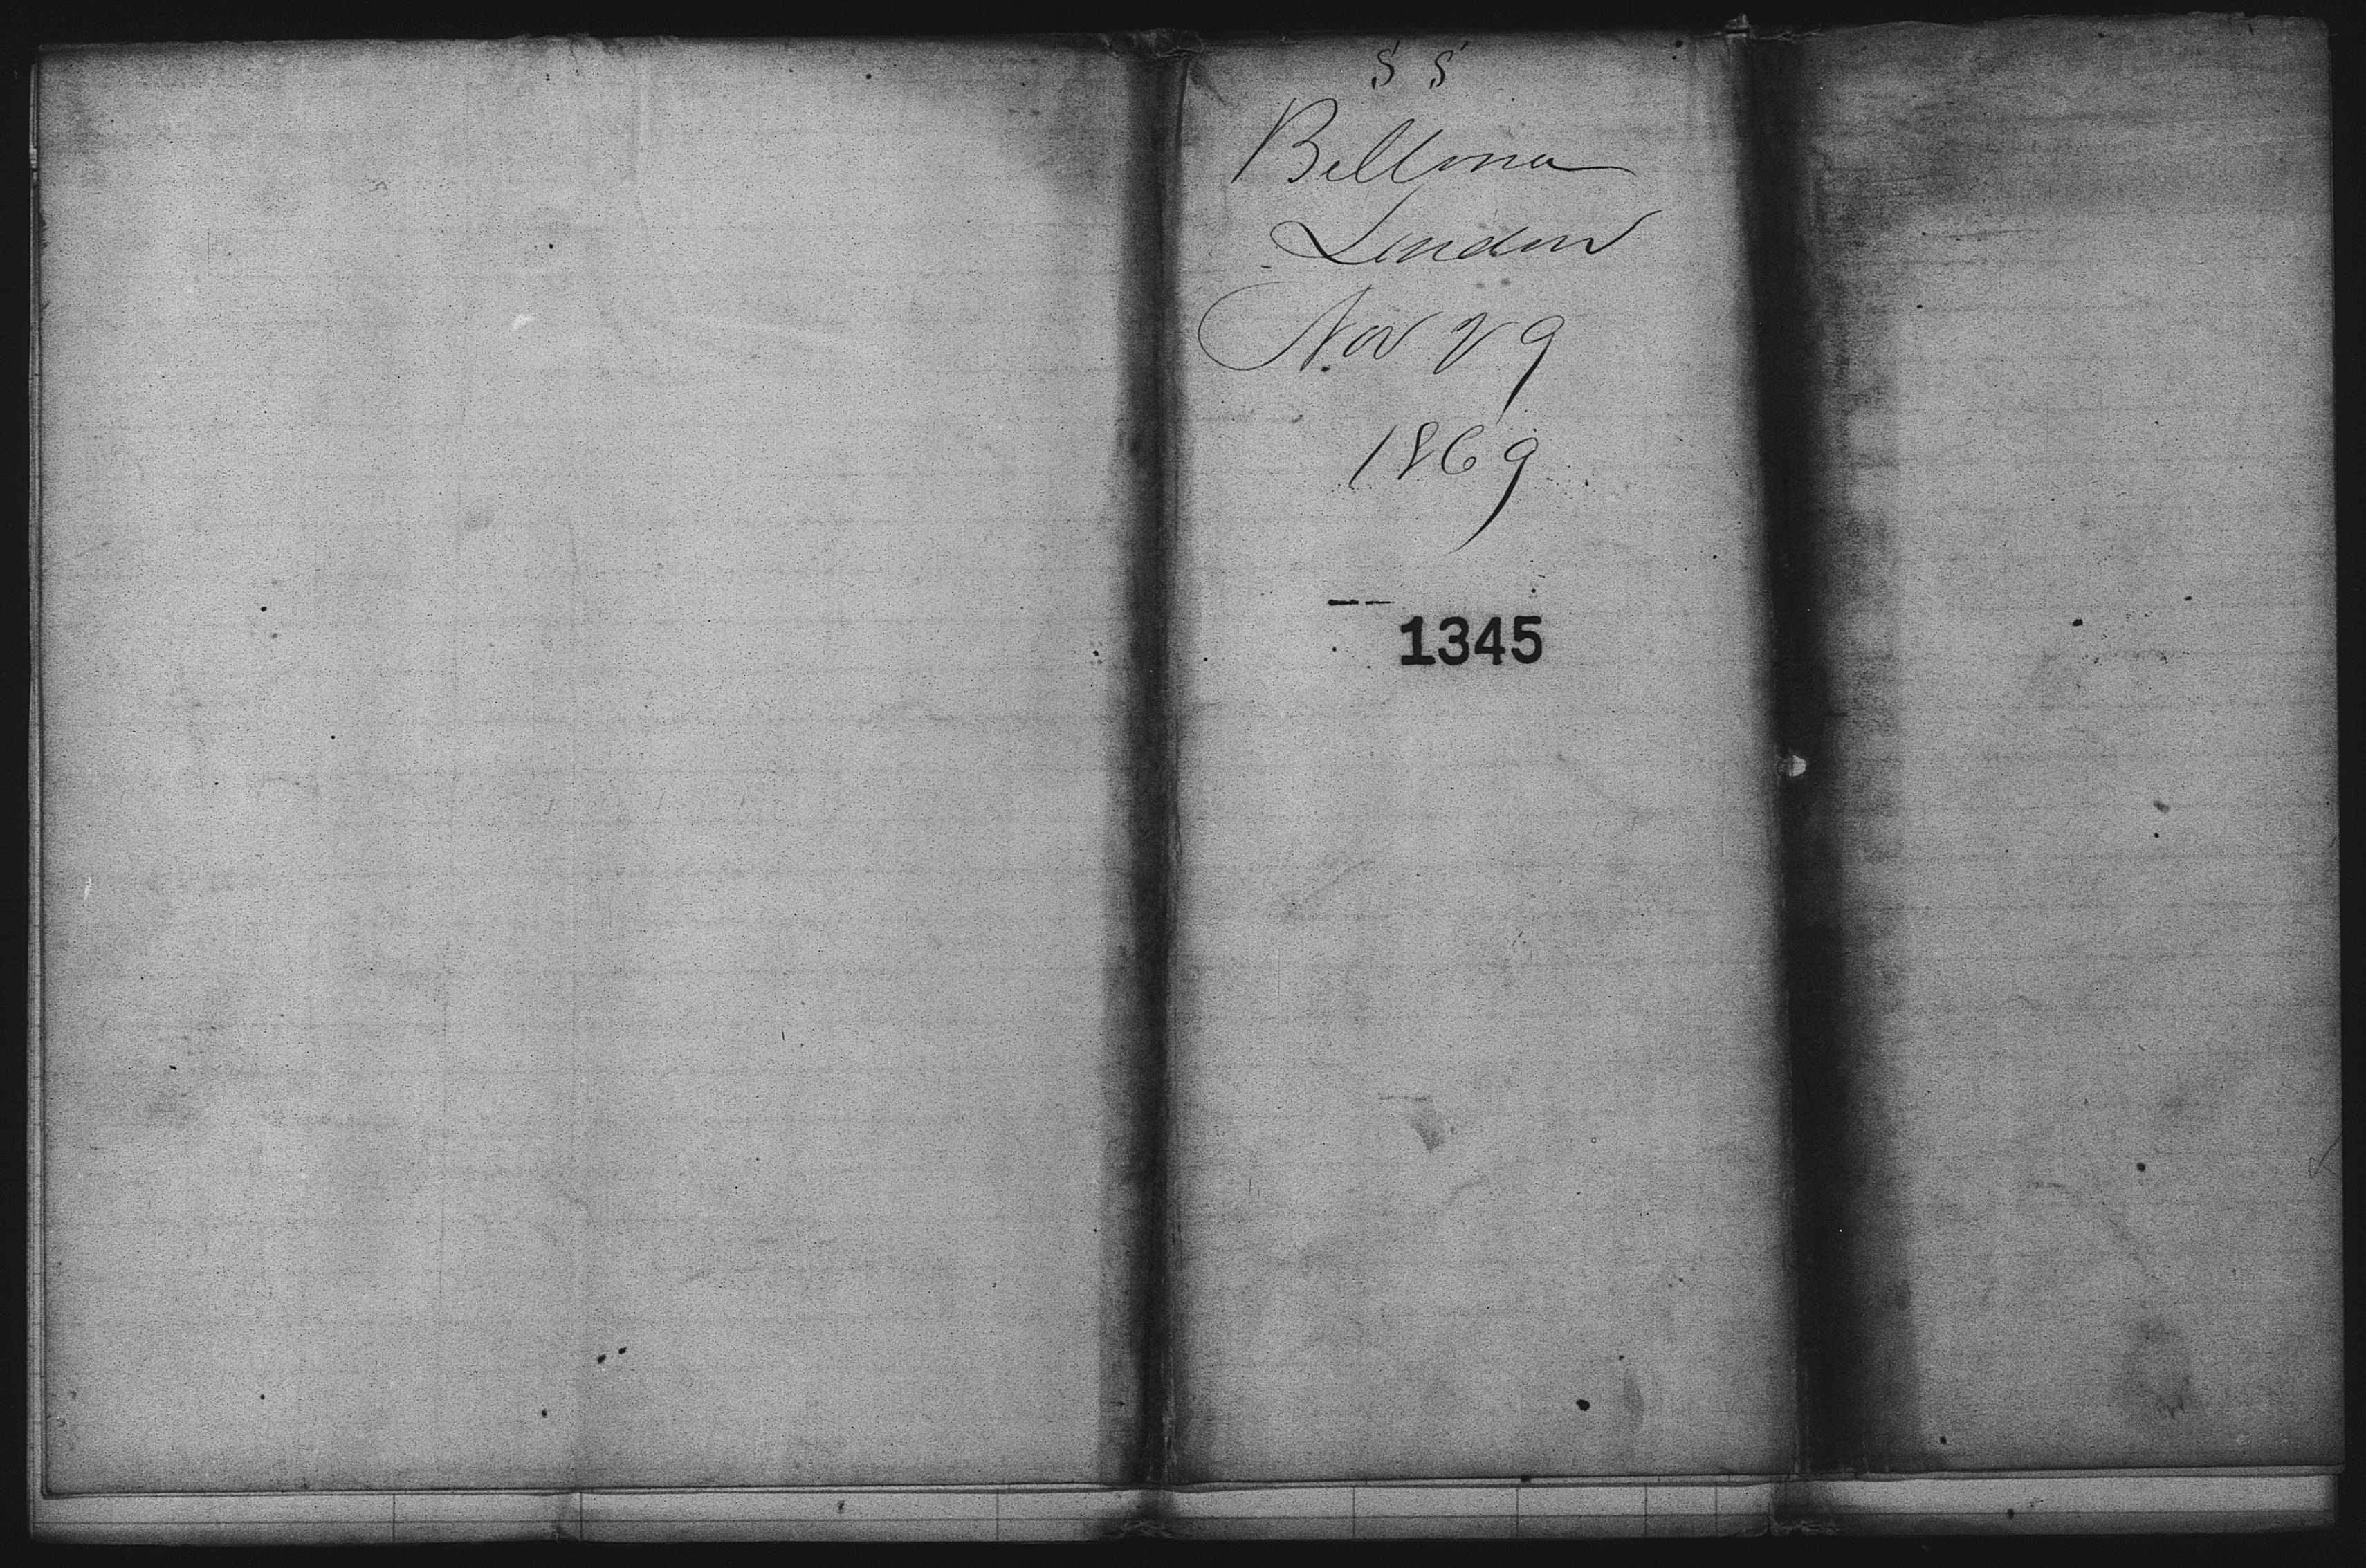 S S
Bellona
London
Nov 29
1869
1345